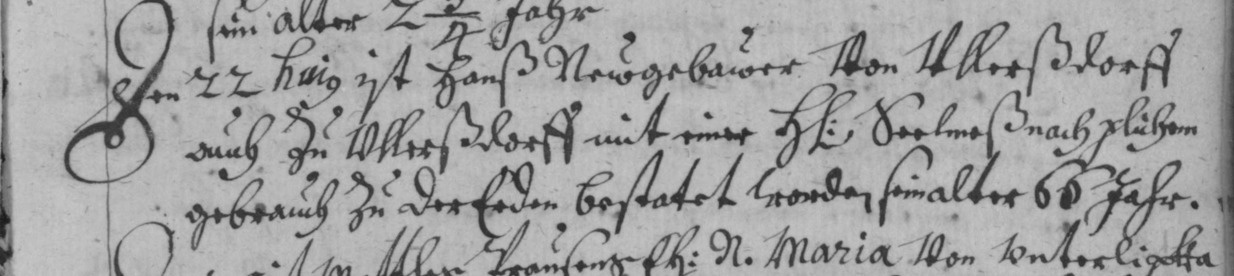 sein alter 2 3/4 Jahr
Den 22 huiꝰ ist Hanß Newgebawer Von Vllerßdorff
auch Zu Vllerßdorff mit einer Hl: Seelmeß nach
gebrauch Zu der Erden bestatet worden sein alter 66 Jahr.
N. Maria Von Vnterligotta